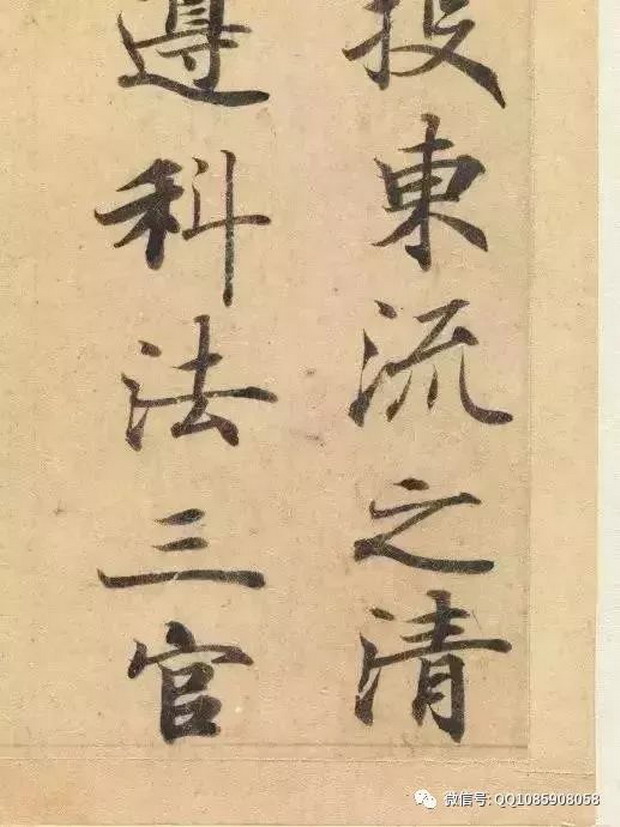 投東流之清
遵科法三官
微信号: QQ1085908058